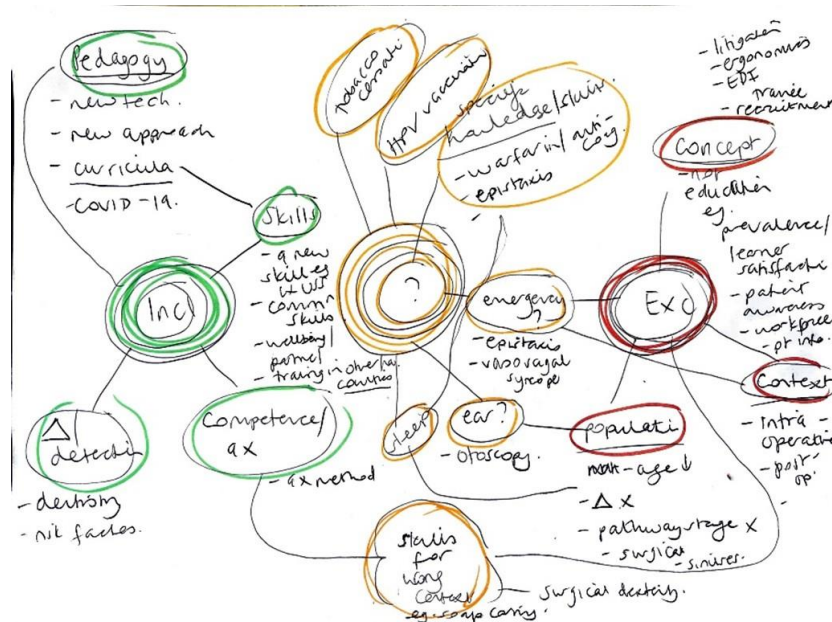 Pedagogy
- new tech.
- new approach
- curricula
- COVID-19.
Skills
- a new
skill eg
common
skills
- wellbeing/
- training in other
countries
Incl
Δ/
detection
- dentistry
- risk factors.
Competence/
ax
- ax method
tobacco
cessati
HPV vaccinati
specific
knowledge/skills
- warfarin/anti-
coag.
- epistaxis
-
?
emergency
?
- epistaxis
- vasovagal
syncope
sleep
ear?
- otoscopy.
skills
for
wrong
context
eg.
- surgical dexterity.
Exc
- litigation
- ergonomics
- EDI
trainee
- recruitment
Concept
- not
education
eg.
prevalence/
learner
satisfacti
- patient
awareness
- workforce
- pt info.
Context
- intra
operative
- post-
op.
-
populati
- age ↓
- Δ x
- pathway stage x
- surgical
- sinuses.